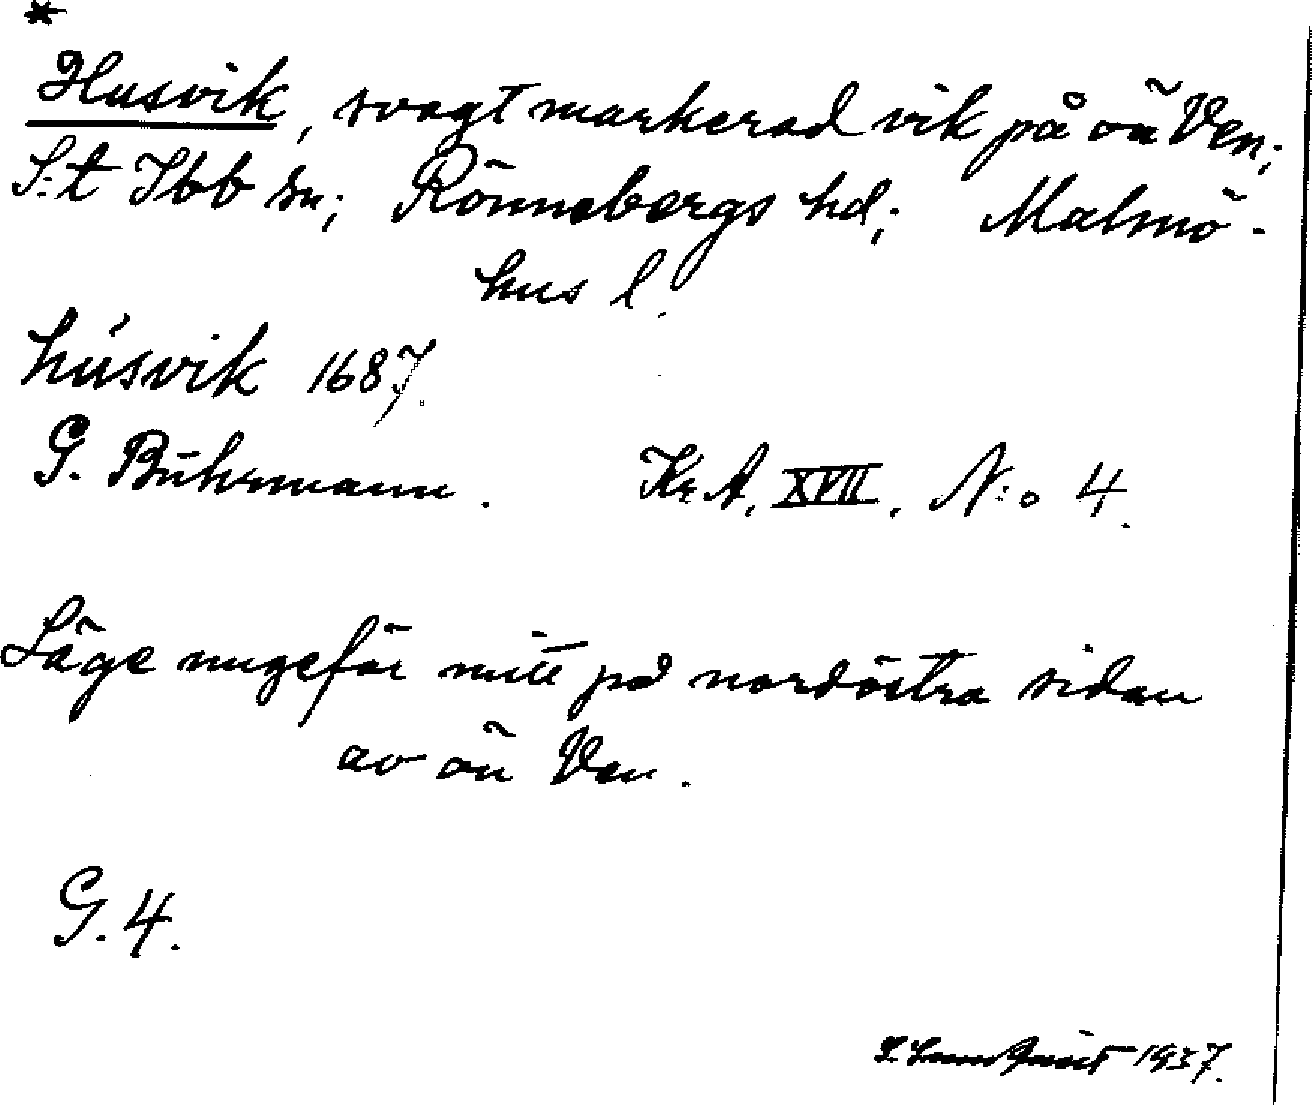 *
Husvik, svagt markerad vik på ön Ven;
S:t Ibb sn; Rönnebergs hd; Malmö-
hus l.
húsvik 1687.
G. Buhrmann. Kr. A. XVII. N:o 4.
Läge ungefär mitt på nordöstra sidan
av ön Ven.
G. 4.
1937.